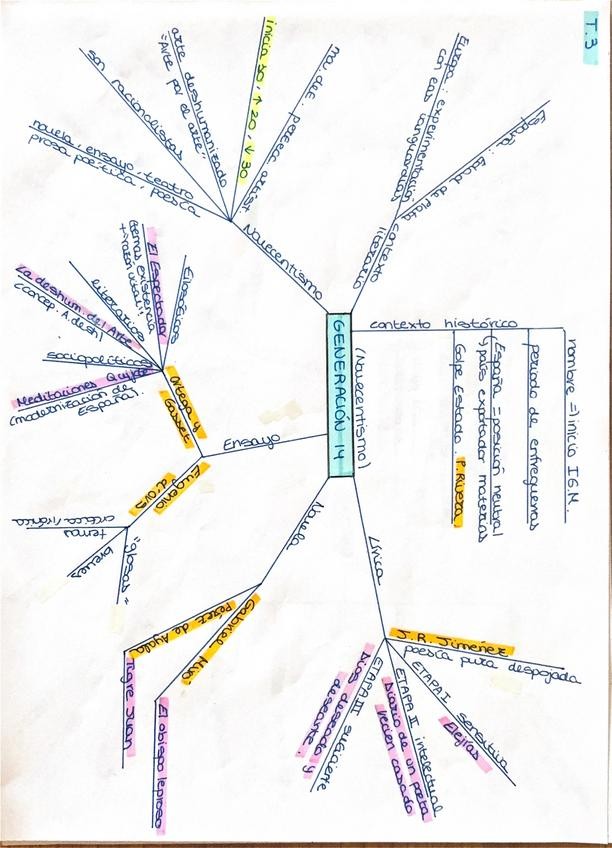 T.3
GENERACIÓN 14
(Novecentismo)
contexto histórico
nombre = inicio I G.M.
periodo de entreguerras
España = posición neutral
país exportador materias
Golpe Estado. P. Rivera
contexto
literario
Europa: experimentación
con las vanguardias
España: Edad de Plata
Novecentismo
inicia 10, ↑ 20, ↓ 30
arte deshumanizado
"Arte por el arte".
son racionalistas
novela, ensayo, teatro
prosa poética, poesía
Ensayo
Ortega y
Gasset
filosóficos
El Espectador
temas existencia
+ razón vital
literarios
La deshum. del Arte
(concep. A. desh)
sociopolíticos
Meditaciones Quijote
(modernización de
España)
Eugenio
d'Ors
"glosas"
breves
temas
crítica/irónica
Novela
Gabriel Miró
El obispo leproso
Pérez de Ayala
Tigre Juan
Lírica
J.R. Jiménez
poesía pura despojada
ETAPA I sensitiva
Elejías
ETAPA II intelectual
Diario de un poeta
recién casado
ETAPA III suficiente
Dios deseado y
deseante